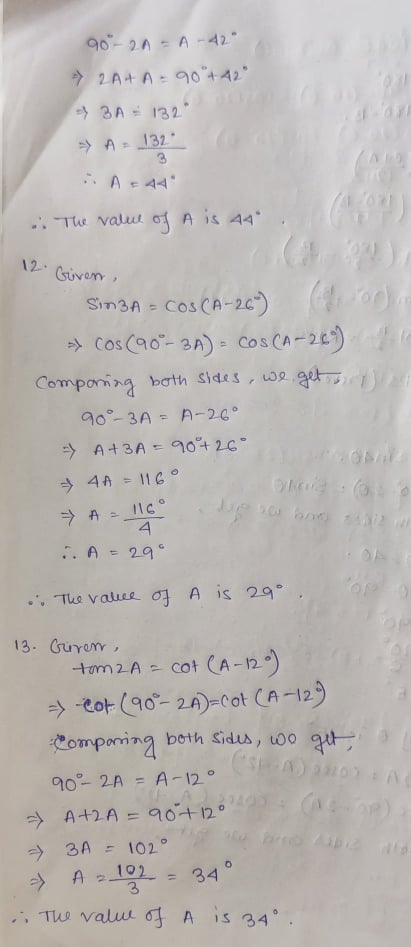 90° - 2A = A - 42°
⇒ 2A + A = 90° + 42°
⇒ 3A = 132°
⇒ A = 132°/3
∴ A = 44°
∴ The value of A is 44°.
12. Given,
Sin3A = cos(A-26°)
⇒ cos(90° - 3A) = cos(A-26°)
Comparing both sides, we get,
90° - 3A = A - 26°
⇒ A + 3A = 90° + 26°
⇒ 4A = 116°
⇒ A = 116°/4
∴ A = 29°
∴ The value of A is 29°.
13. Given,
tan2A = cot (A-12°)
⇒ cot (90° - 2A) = cot (A-12°)
Comparing both sides, we get,
90° - 2A = A - 12°
⇒ A + 2A = 90° + 12°
⇒ 3A = 102°
⇒ A = 102/3 = 34°
∴ The value of A is 34°.